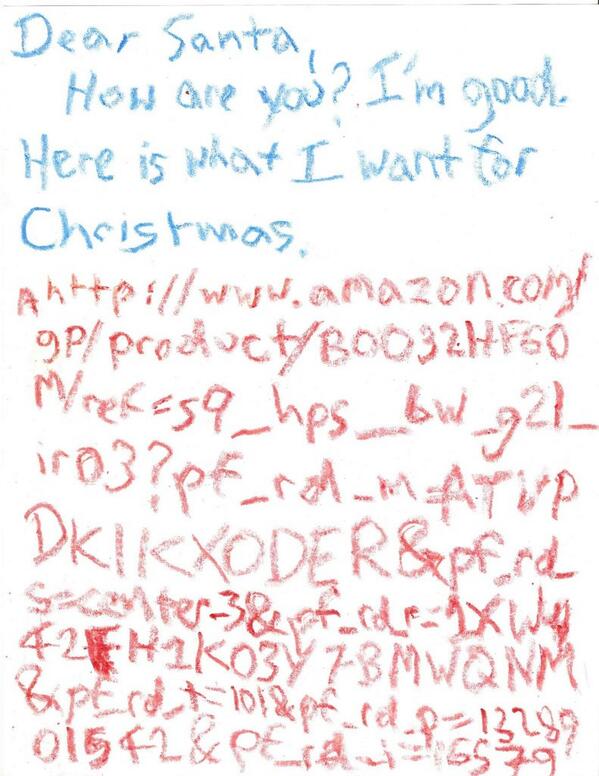 Dear Santa,
How are you? I'm good.
Here is what I want for
Christmas.
http://www.amazon.com/
gp/product/B0032HF60
M/ref=s9_hps_bw_g21_
ir03?pf_rd_m=ATVP
DKIKX0DER&pf_rd_
s=center-3&pf_rd_r=1XW4
42FH1K03Y7BMWQNM
&pf_rd_t=101&pf_rd_p=13289
01542&pf_rd_i=16579